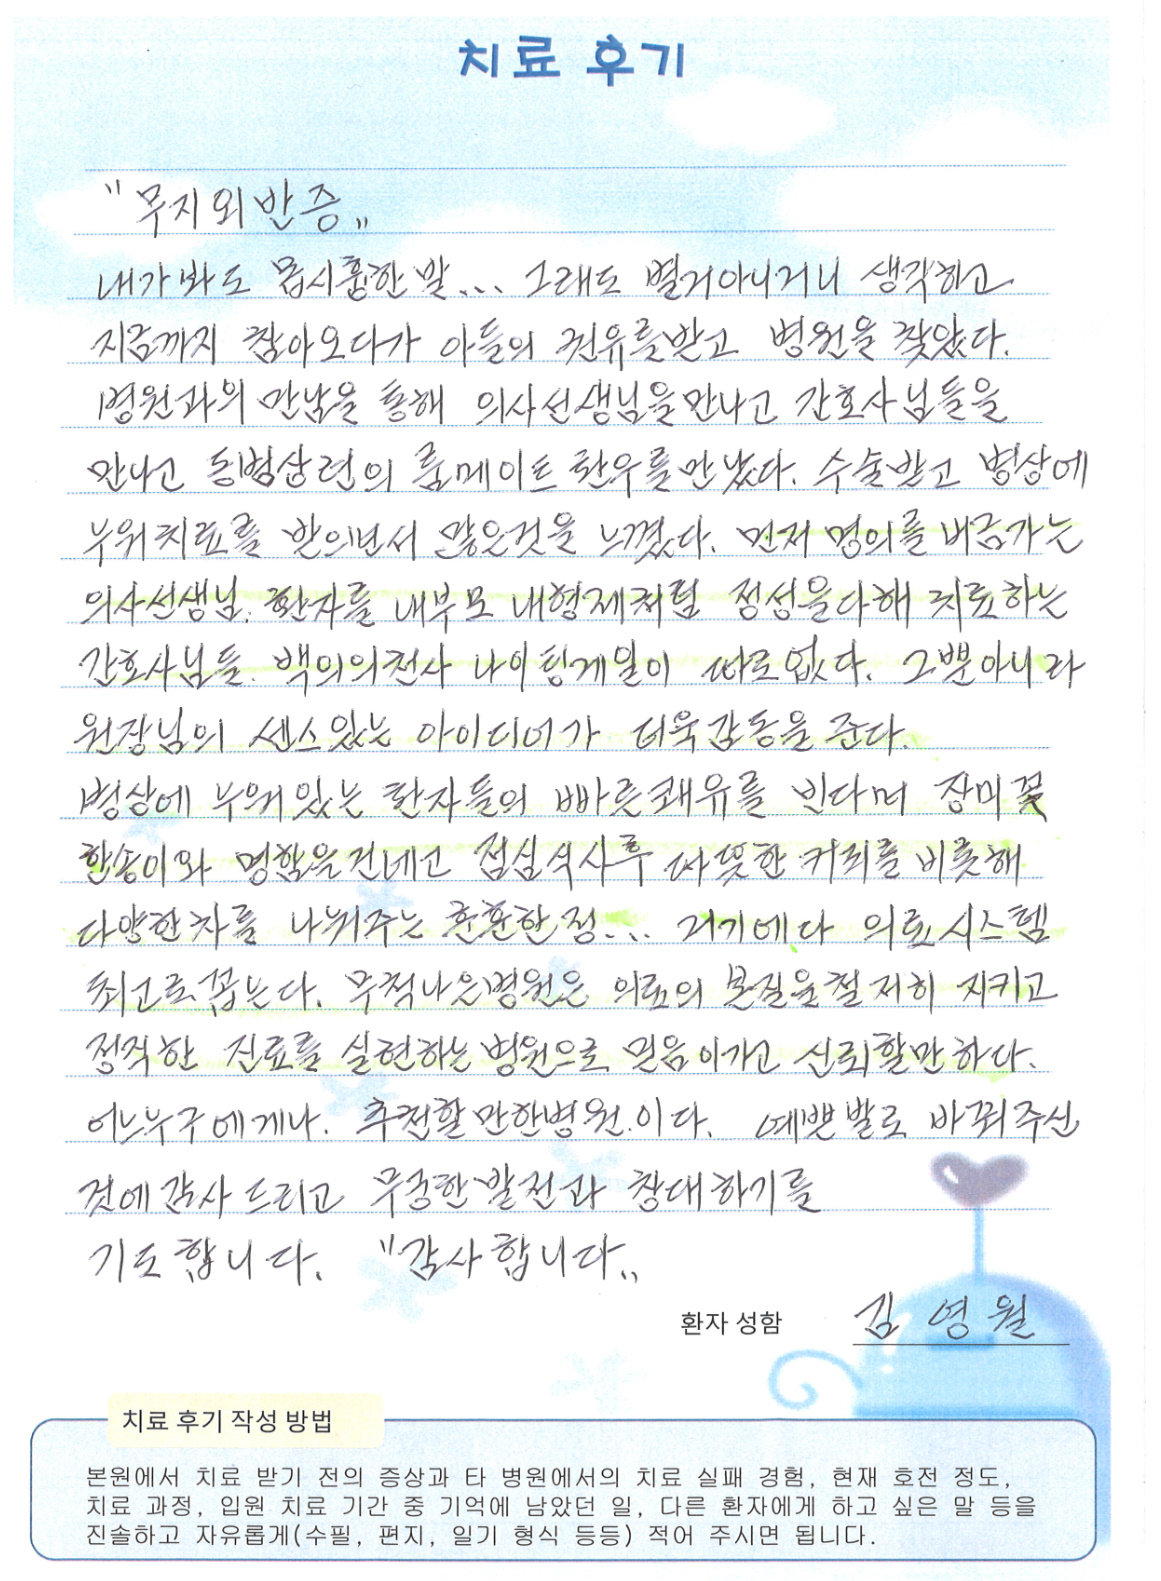 치료 후기
"무지외반증"
내가봐도 몹시흉한발... 그래도 별거아니거니 생각하고
지금까지 참아오다가 아들의 권유를받고 병원을 찾았다.
병원과의 만남을 통해 의사선생님을만나고 간호사님들을
만나고 동병상련의 룸메이트 환우를만났다. 수술받고 병상에
누워치료를 받으면서 많은것을 느꼈다. 먼저 명의를 버금가는
의사선생님. 환자를 내부모 내형제처럼 정성을다해 치료하는
간호사님들. 백의의천사 나이팅게일이 따로없다. 그뿐아니라
원장님의 센스있는 아이디어가 더욱감동을 준다.
병상에 누워있는 환자들의 빠른쾌유를 빈다며 장미꽃
한송이와 명함을건네고 점심식사후 따뜻한 커피를 비롯해
다양한차를 나눠주는 훈훈한정... 거기에다 의료시스템
최고로꼽는다. 무척나은병원은 의료의 본질을철저히 지키고
정직한 진료를 실현하는병원으로 믿음이가고 신뢰할만하다.
어느누구에게나. 추천할만한병원.이다. 예쁜발로 바꿔주신
것에감사드리고 무궁한발전과 창대하기를
기도합니다. "감사합니다"
환자 성함 김영월
치료 후기 작성 방법
본원에서 치료 받기 전의 증상과 타 병원에서의 치료 실패 경험, 현재 호전 정도,
치료 과정, 입원 치료 기간 중 기억에 남았던 일, 다른 환자에게 하고 싶은 말 등을
진솔하고 자유롭게(수필, 편지, 일기 형식 등등) 적어 주시면 됩니다.